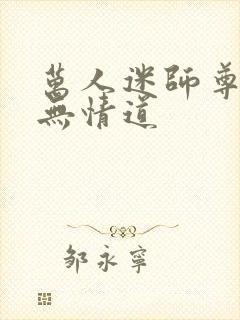 萬人迷師尊
無情道
鄒永寧